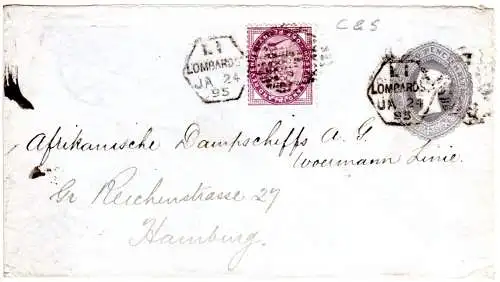 C & S
L1
LOMBARD S
JA 24
95
L1
LOMBARD S
JA 24
95
Afrikanische Dampschiffs A. G.
Woermann Linie.
Gr Reichenstrasse 27
Hamburg.